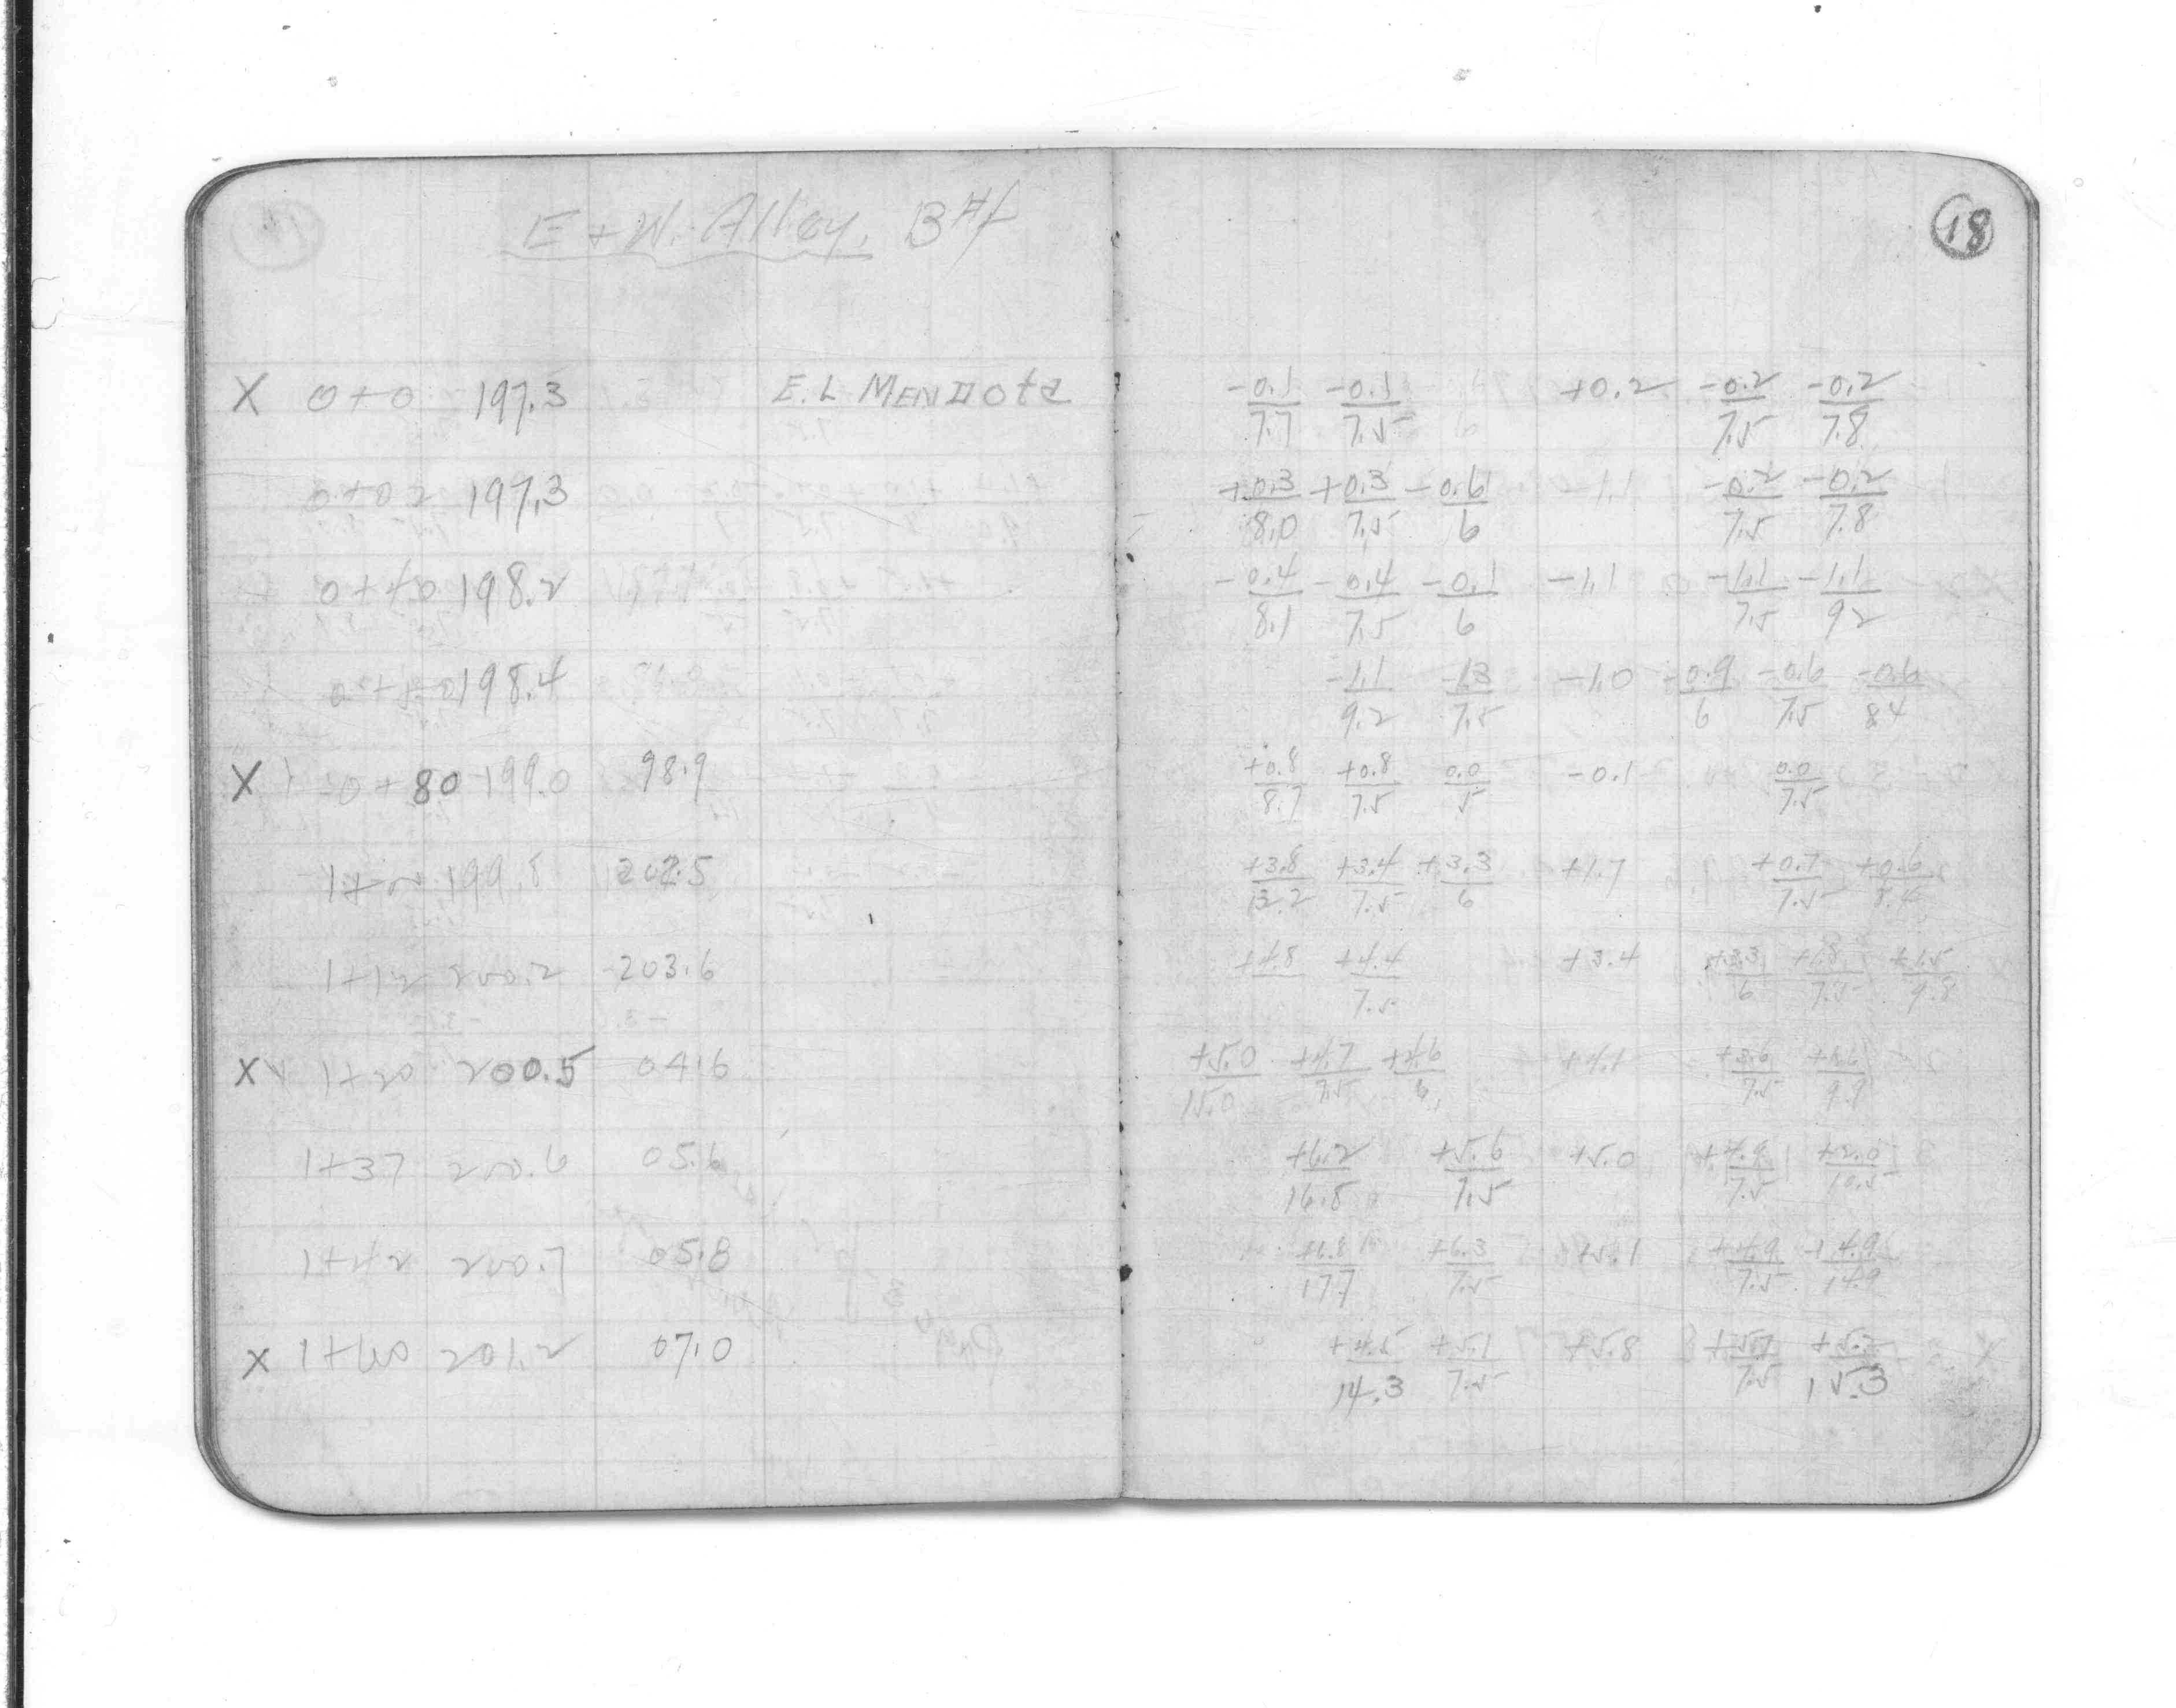 E + W. Alley. B#1
18
X 0+0 197.3 E.L MENDota
-0.1/7.7 -0.1/7.5 +0.2 -0.2/7.5 -0.2/7.8
0+02 197.3
+0.3/8.0 +0.3/7.5 -0.6/6 -1.1 -0.2/7.5 -0.2/7.8
0+40 198.2
-0.4/8.1 -0.4/7.5 -0.1/6 -1.1 -1.1/7.5 -1.1/9.2
198.4
-1.1/9.2 -1.3/7.5 -1.0 -0.9/6 -0.6/7.5 -0.6/8.4
X 0+80 199.0 98.9
+0.8/8.7 +0.8/7.5 0.0/5 -0.1 0.0/7.5
199.8 202.5
+3.8/13.2 +3.4/7.5 +3.3/6 +1.7 +0.7/7.5 +0.6/8.4
1+12 200.2 203.6
+4.8 +4.4/7.5 +3.4 +3.3/6 +1.8/7.5 +1.5/9.8
X 1+20 200.5 04.6
+5.0/15.0 +4.7/7.5 +4.6/6 +4.1 +3.6/7.5
1+37 200.6 05.6
+6.2/16.8 +5.6/7.5 +5.0 +4.9/7.5 +2.0/10.5
1+42 200.7 05.8
+6.8/17.7 +6.3/7.5 +5.1 +4.9/7.5 +4.9/14.9
X 1+60 201.2 07.0
+4.5/14.3 +5.1/7.5 +5.8 15.3